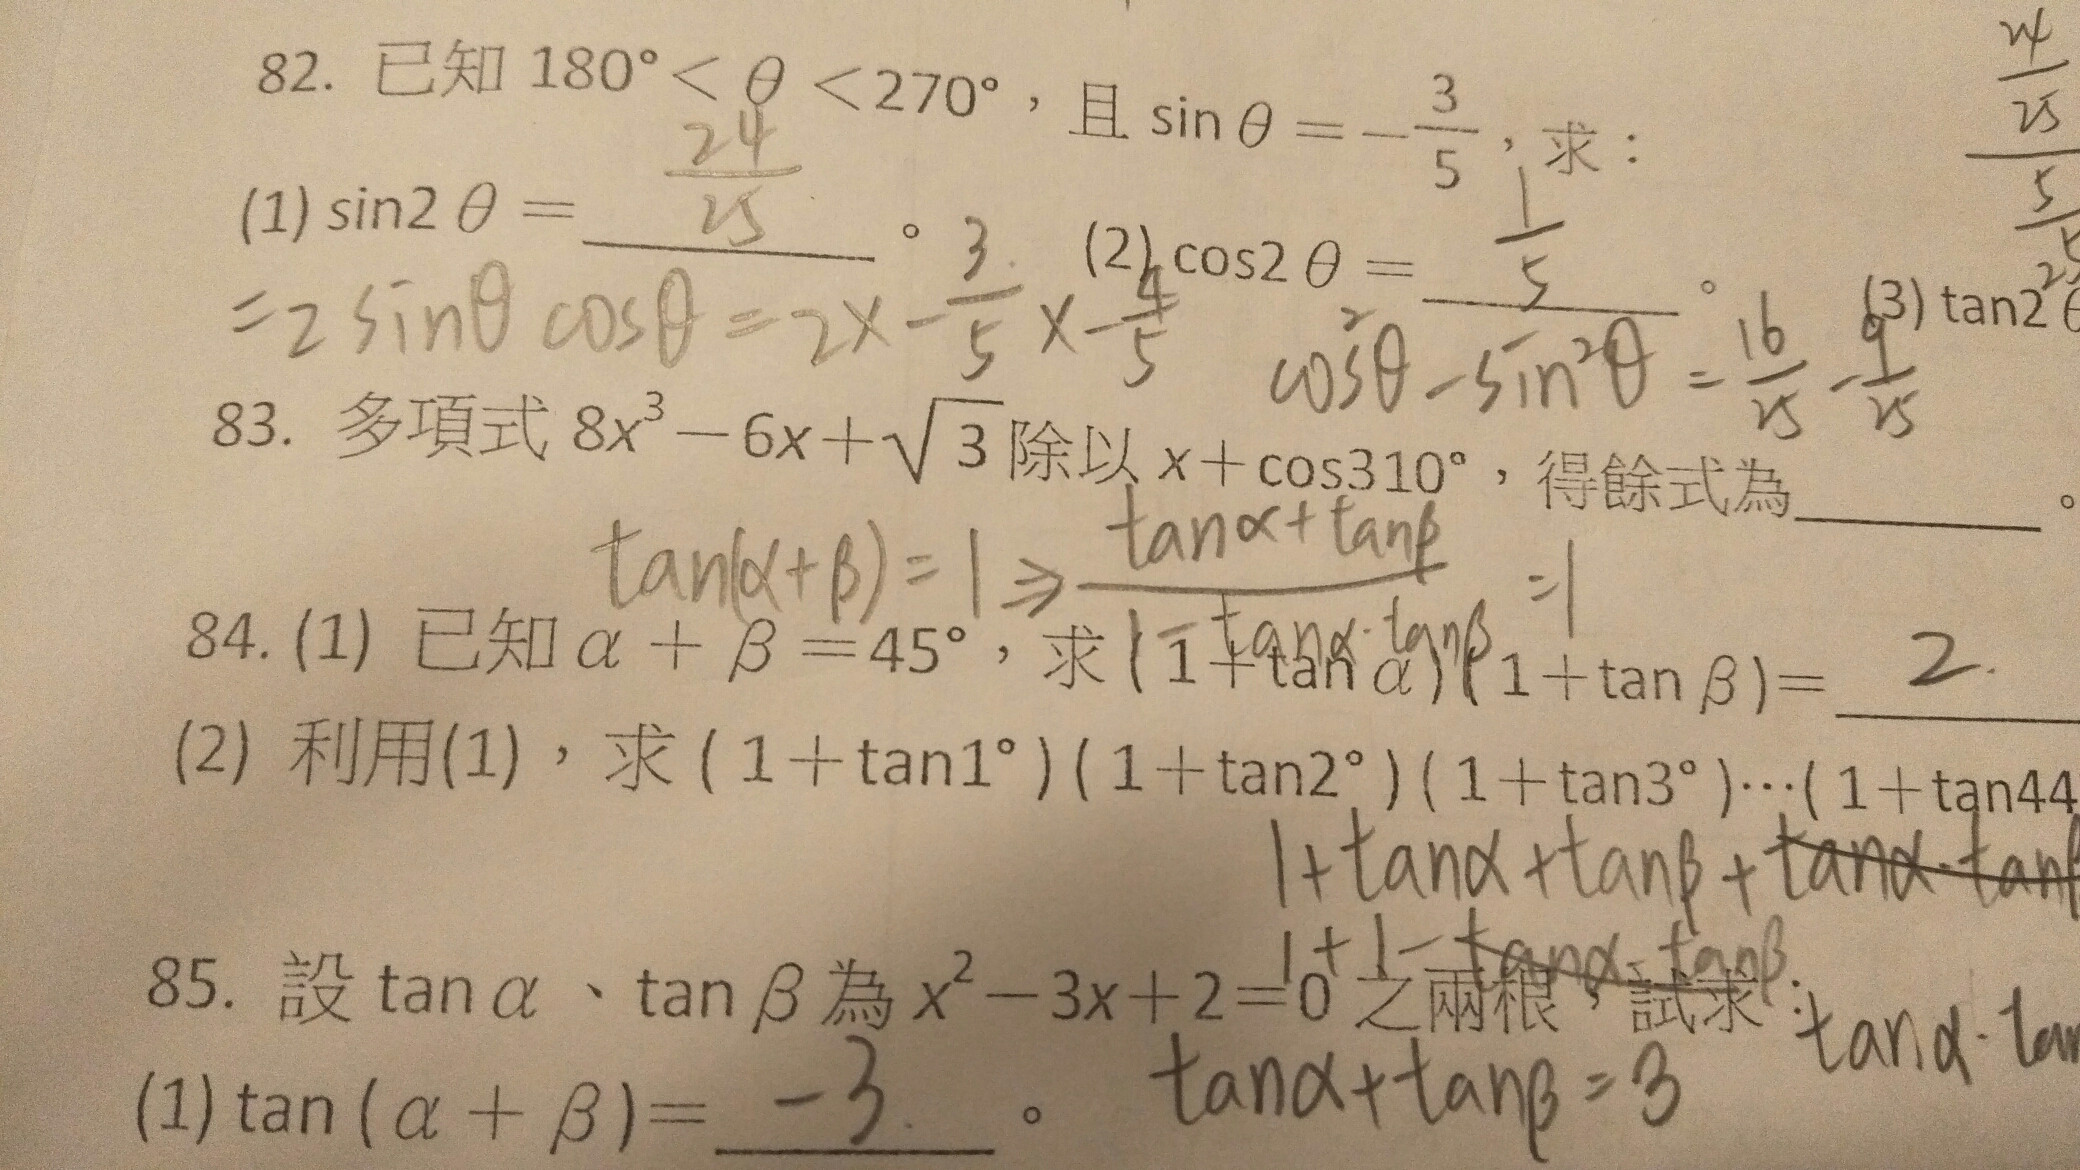 82. 已知 180°＜θ＜270°，且 sinθ＝－3/5，求：
24/25
24/25
5/25
(1) sin2θ＝ 24/25 。 (2) cos2θ＝ 1/5 。 (3) tan2θ
=2sinθcosθ=2×-3/5×-4/5 cos²θ-sin²θ=16/25-9/25
83. 多項式 8x³－6x＋√3 除以 x＋cos310°，得餘式為____。
tan(α+β)=1⇒(tanα+tanβ)/(1-tanα·tanβ)=1
84. (1) 已知α＋β＝45°，求(1＋tanα)(1＋tanβ)＝ 2.
(2) 利用(1)，求(1＋tan1°)(1＋tan2°)(1＋tan3°)⋯(1＋tan44
1+tanα+tanβ+tanα·tanβ
1+1-tanα·tanβ
85. 設 tanα、tanβ為 x²－3x＋2＝0 之兩根，試求：
tanα·tan
(1) tan(α＋β)＝ -3 。 tanα+tanβ=3